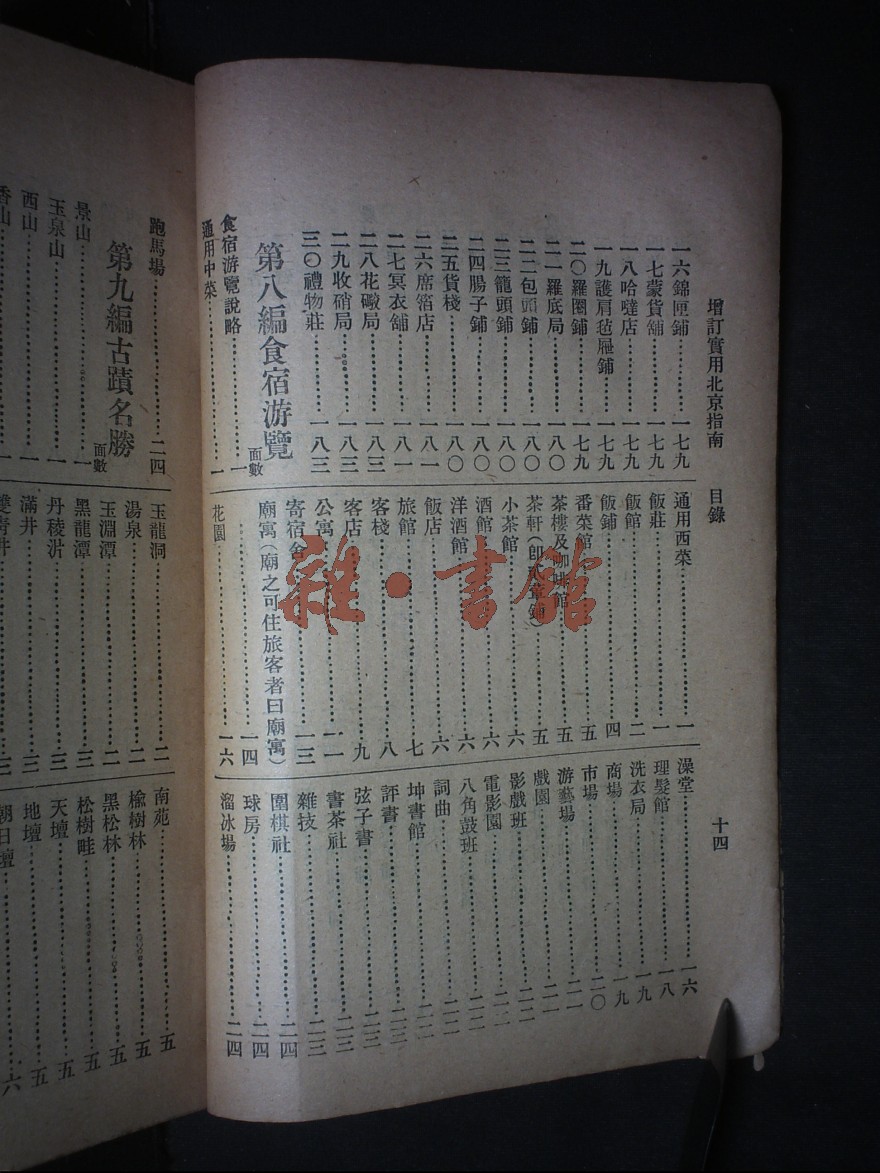 增訂實用北京指南 目錄 十四
一六錦匣鋪……一七九
一七蒙貨舖……一七九
一八哈噠店……一七九
一九護肩毡屜鋪……一七九
二〇羅圈鋪……一七九
二一羅底局……一八〇
二二包頭鋪……一八〇
二三籠頭鋪……一八〇
二四腸子鋪……一八〇
二五貨棧……一八〇
二六席箔店……一八一
二七冥衣舖……一八一
二八花磤局……一八三
二九收硝局……一八三
三〇禮物莊……一八三
第八編食宿游覽 面數
食宿游覽說略……一
通用中菜……一
通用西菜……一
飯莊……一
飯館……二
飯鋪……四
番菜館……五
茶樓及咖啡館……五
茶軒……五
小茶館……六
酒館……六
洋酒館……六
飯店……六
旅館……七
客棧……八
客店……九
公寓……一一
寄宿舍……一三
廟寓(廟之可住旅客者曰廟寓)……一四
花園……一六
澡堂……一六
理髮館……一八
洗衣局……一九
商場……一九
市場……二〇
游藝場……二一
戲園……二一
影戲班……二二
電影園
八角鼓班
詞曲
坤書館
評書
弦子書……二三
書茶社……二三
雜技……二三
圍棋社……二四
球房……二四
溜冰場……二四
跑馬場……二四
第九編古蹟名勝 面數
景山……一
玉泉山……一
西山……一
香山……一
玉龍洞……二
湯泉……二
玉淵潭……二
黑龍潭……三
丹稜沜……三
滿井……三
雙青井……三
南苑……五
楡樹林……五
黑松林……五
松樹畦……五
天壇……五
地壇……五
朝日壇……六
雜·書館